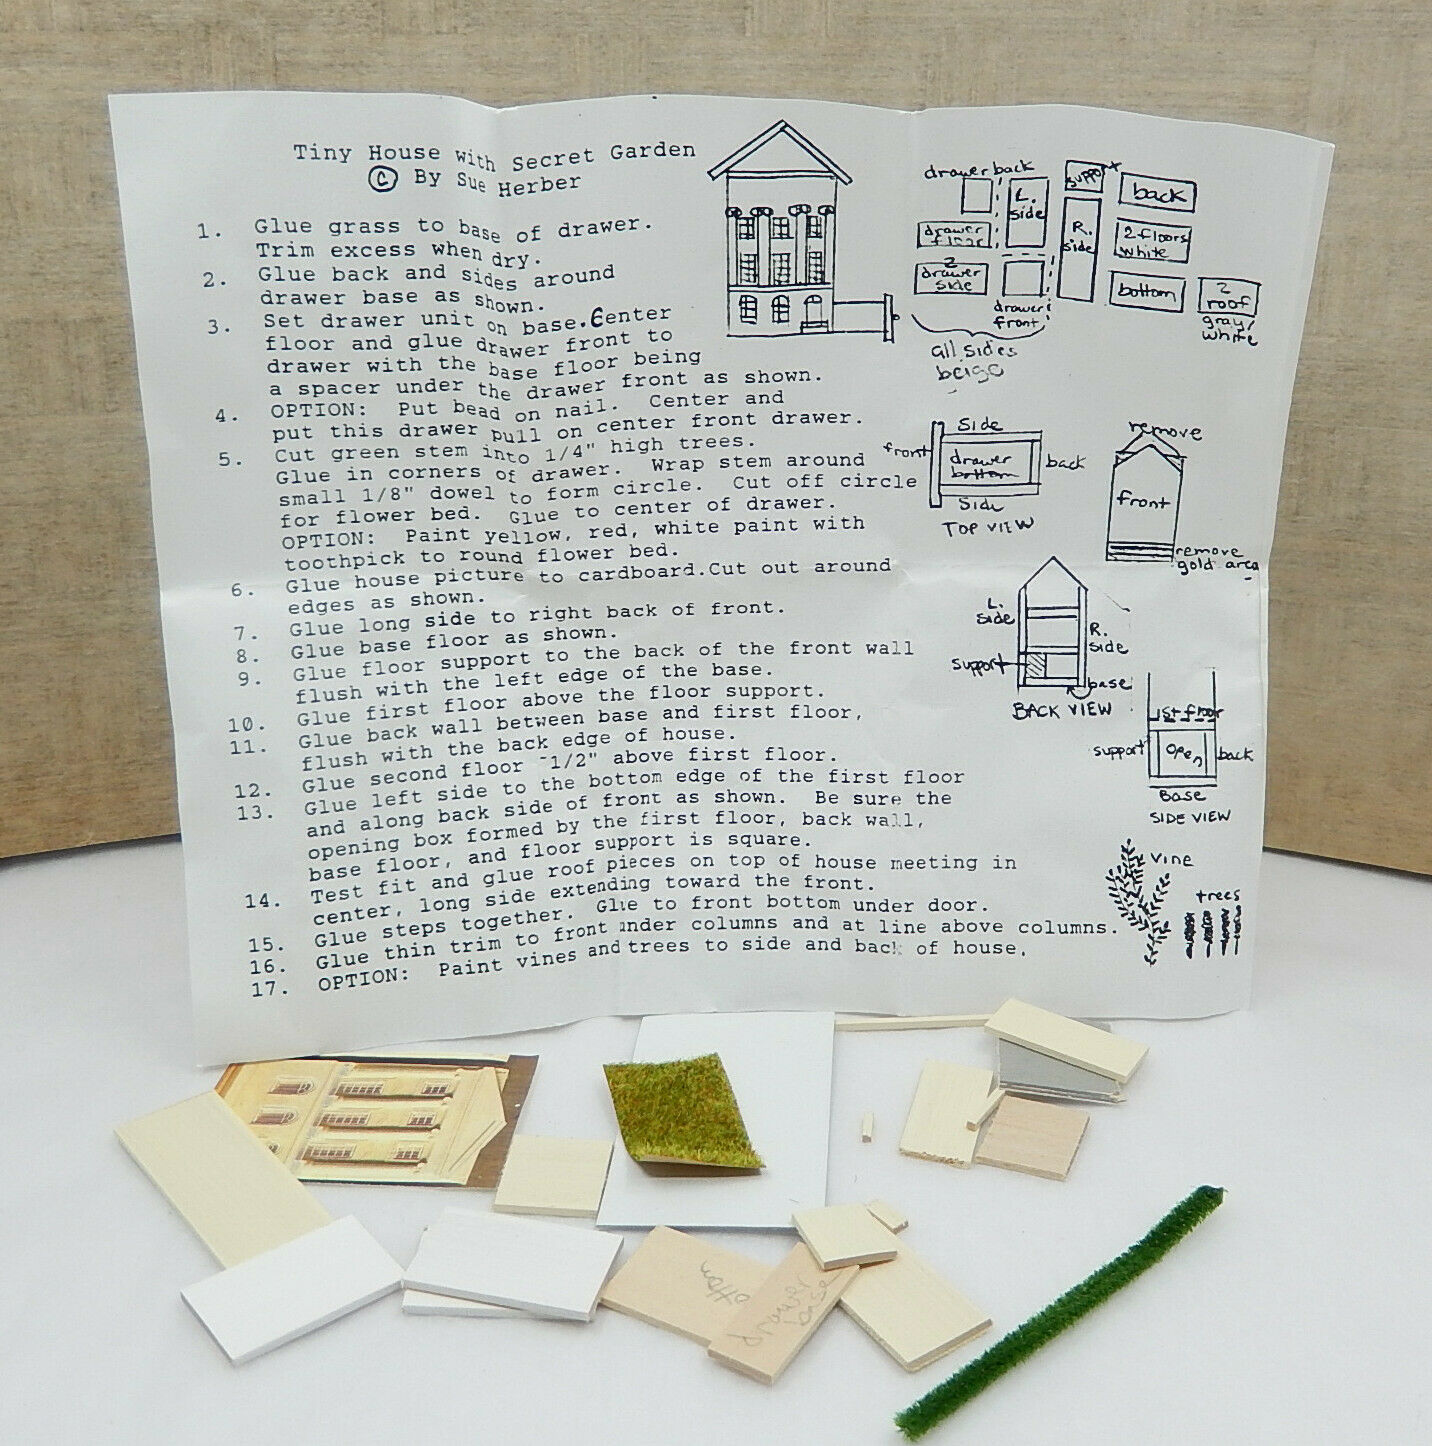 Tiny House with Secret Garden
© By Sue Herber
1. Glue grass to base of drawer.
Trim excess when dry.
2. Glue back and sides around
drawer base as shown.
3. Set drawer unit on base. Center
floor and glue drawer front to
drawer with the base floor being
a spacer under the drawer front as shown.
4. OPTION: Put bead on nail. Center and
put this drawer pull on center front drawer.
5. Cut green stem into 1/4" high trees.
Glue in corners of drawer. Wrap stem around
small 1/8" dowel to form circle. Cut off circle
for flower bed. Glue to center of drawer.
OPTION: Paint yellow, red, white paint with
toothpick to round flower bed.
6. Glue house picture to cardboard.Cut out around
edges as shown.
7. Glue long side to right back of front.
8. Glue base floor as shown.
9. Glue floor support to the back of the front wall
flush with the left edge of the base.
10. Glue first floor above the floor support.
11. Glue back wall between base and first floor,
flush with the back edge of house.
12. Glue second floor 1/2" above first floor.
13. Glue left side to the bottom edge of the first floor
and along back side of front as shown. Be sure the
opening box formed by the first floor, back wall,
base floor, and floor support is square.
14. Test fit and glue roof pieces on top of house meeting in
center, long side extending toward the front.
15. Glue steps together. Glue to front bottom under door.
16. Glue thin trim to front under columns and at line above columns.
17. OPTION: Paint vines and trees to side and back of house.
drawer back
L. side
support
R. side
back
drawer floor
2 floors white
2 drawer side
drawer front
bottom
2 roof
gray/white
all sides
beige
Side
front
drawer
bottom
back
Side
TOP VIEW
remove
front
remove
gold area
L. side
R. side
support
base
BACK VIEW
1st floor
support
open
back
Base
SIDE VIEW
vine
trees
ottom
drawer
base